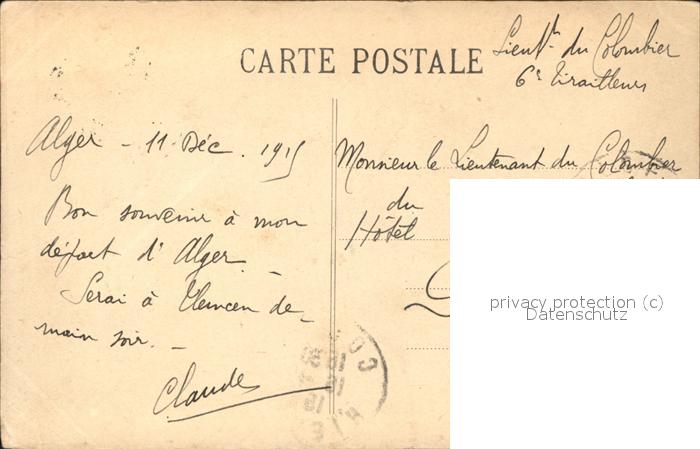 CARTE POSTALE
Lieut^t du Colombier
6e Tirailleurs
Alger - 11 Déc. 1915
Bon souvenir à mon
départ d'Alger. -
Serai à Tlemcen de-
main soir. -
Claude
Monsieur le Lieutenant du Colombier
du
Hôtel
privacy protection (c)
Datenschutz